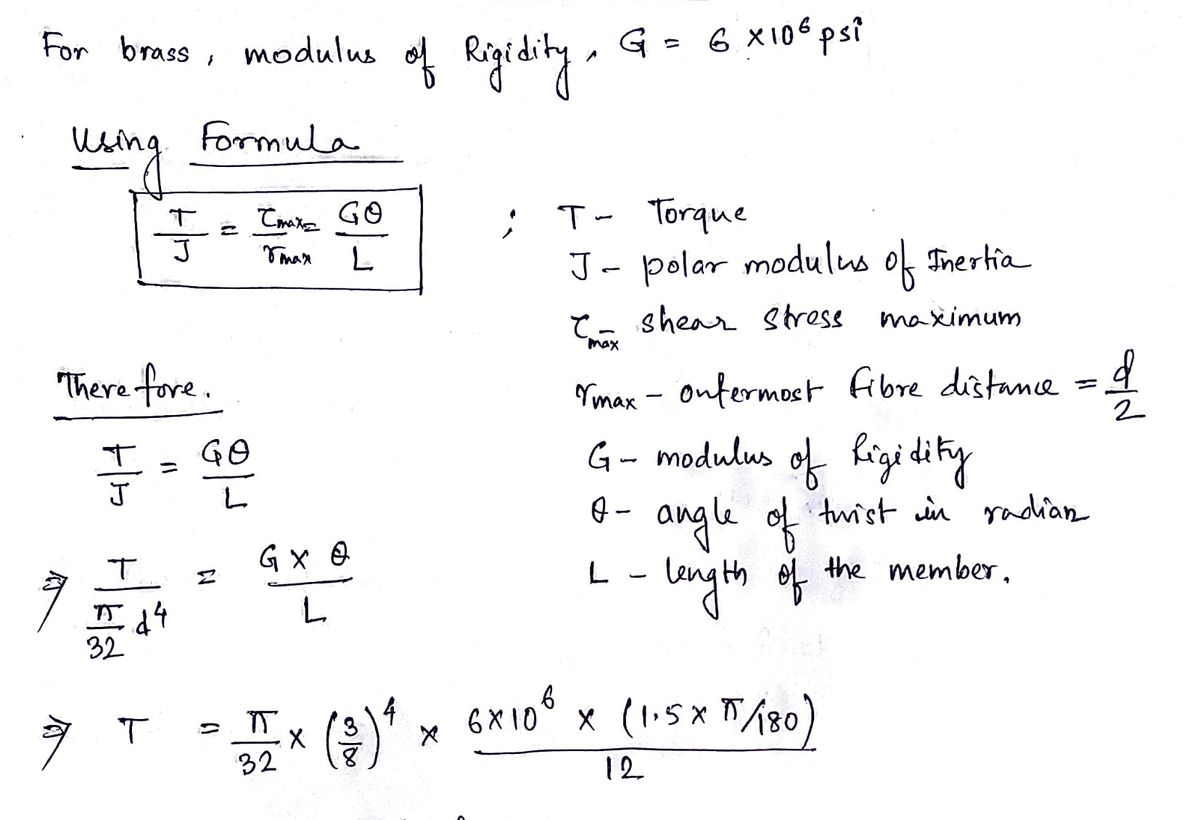 For brass, modulus of Rigidity, G = 6 × 10⁶ psi
Using Formula
T/J = τmax/rmax = Gθ/L ; T - Torque
J - polar modulus of Inertia
τmax - shear stress maximum
Therefore. rmax - outermost fibre distance = d/2
T/J = Gθ/L G - modulus of Rigidity
θ - angle of twist in radian
⇒ T/(π/32 d⁴) = G × θ/L L - length of the member.
⇒ T = π/32 × (3/8)⁴ × 6×10⁶ × (1.5 × π/180)/12